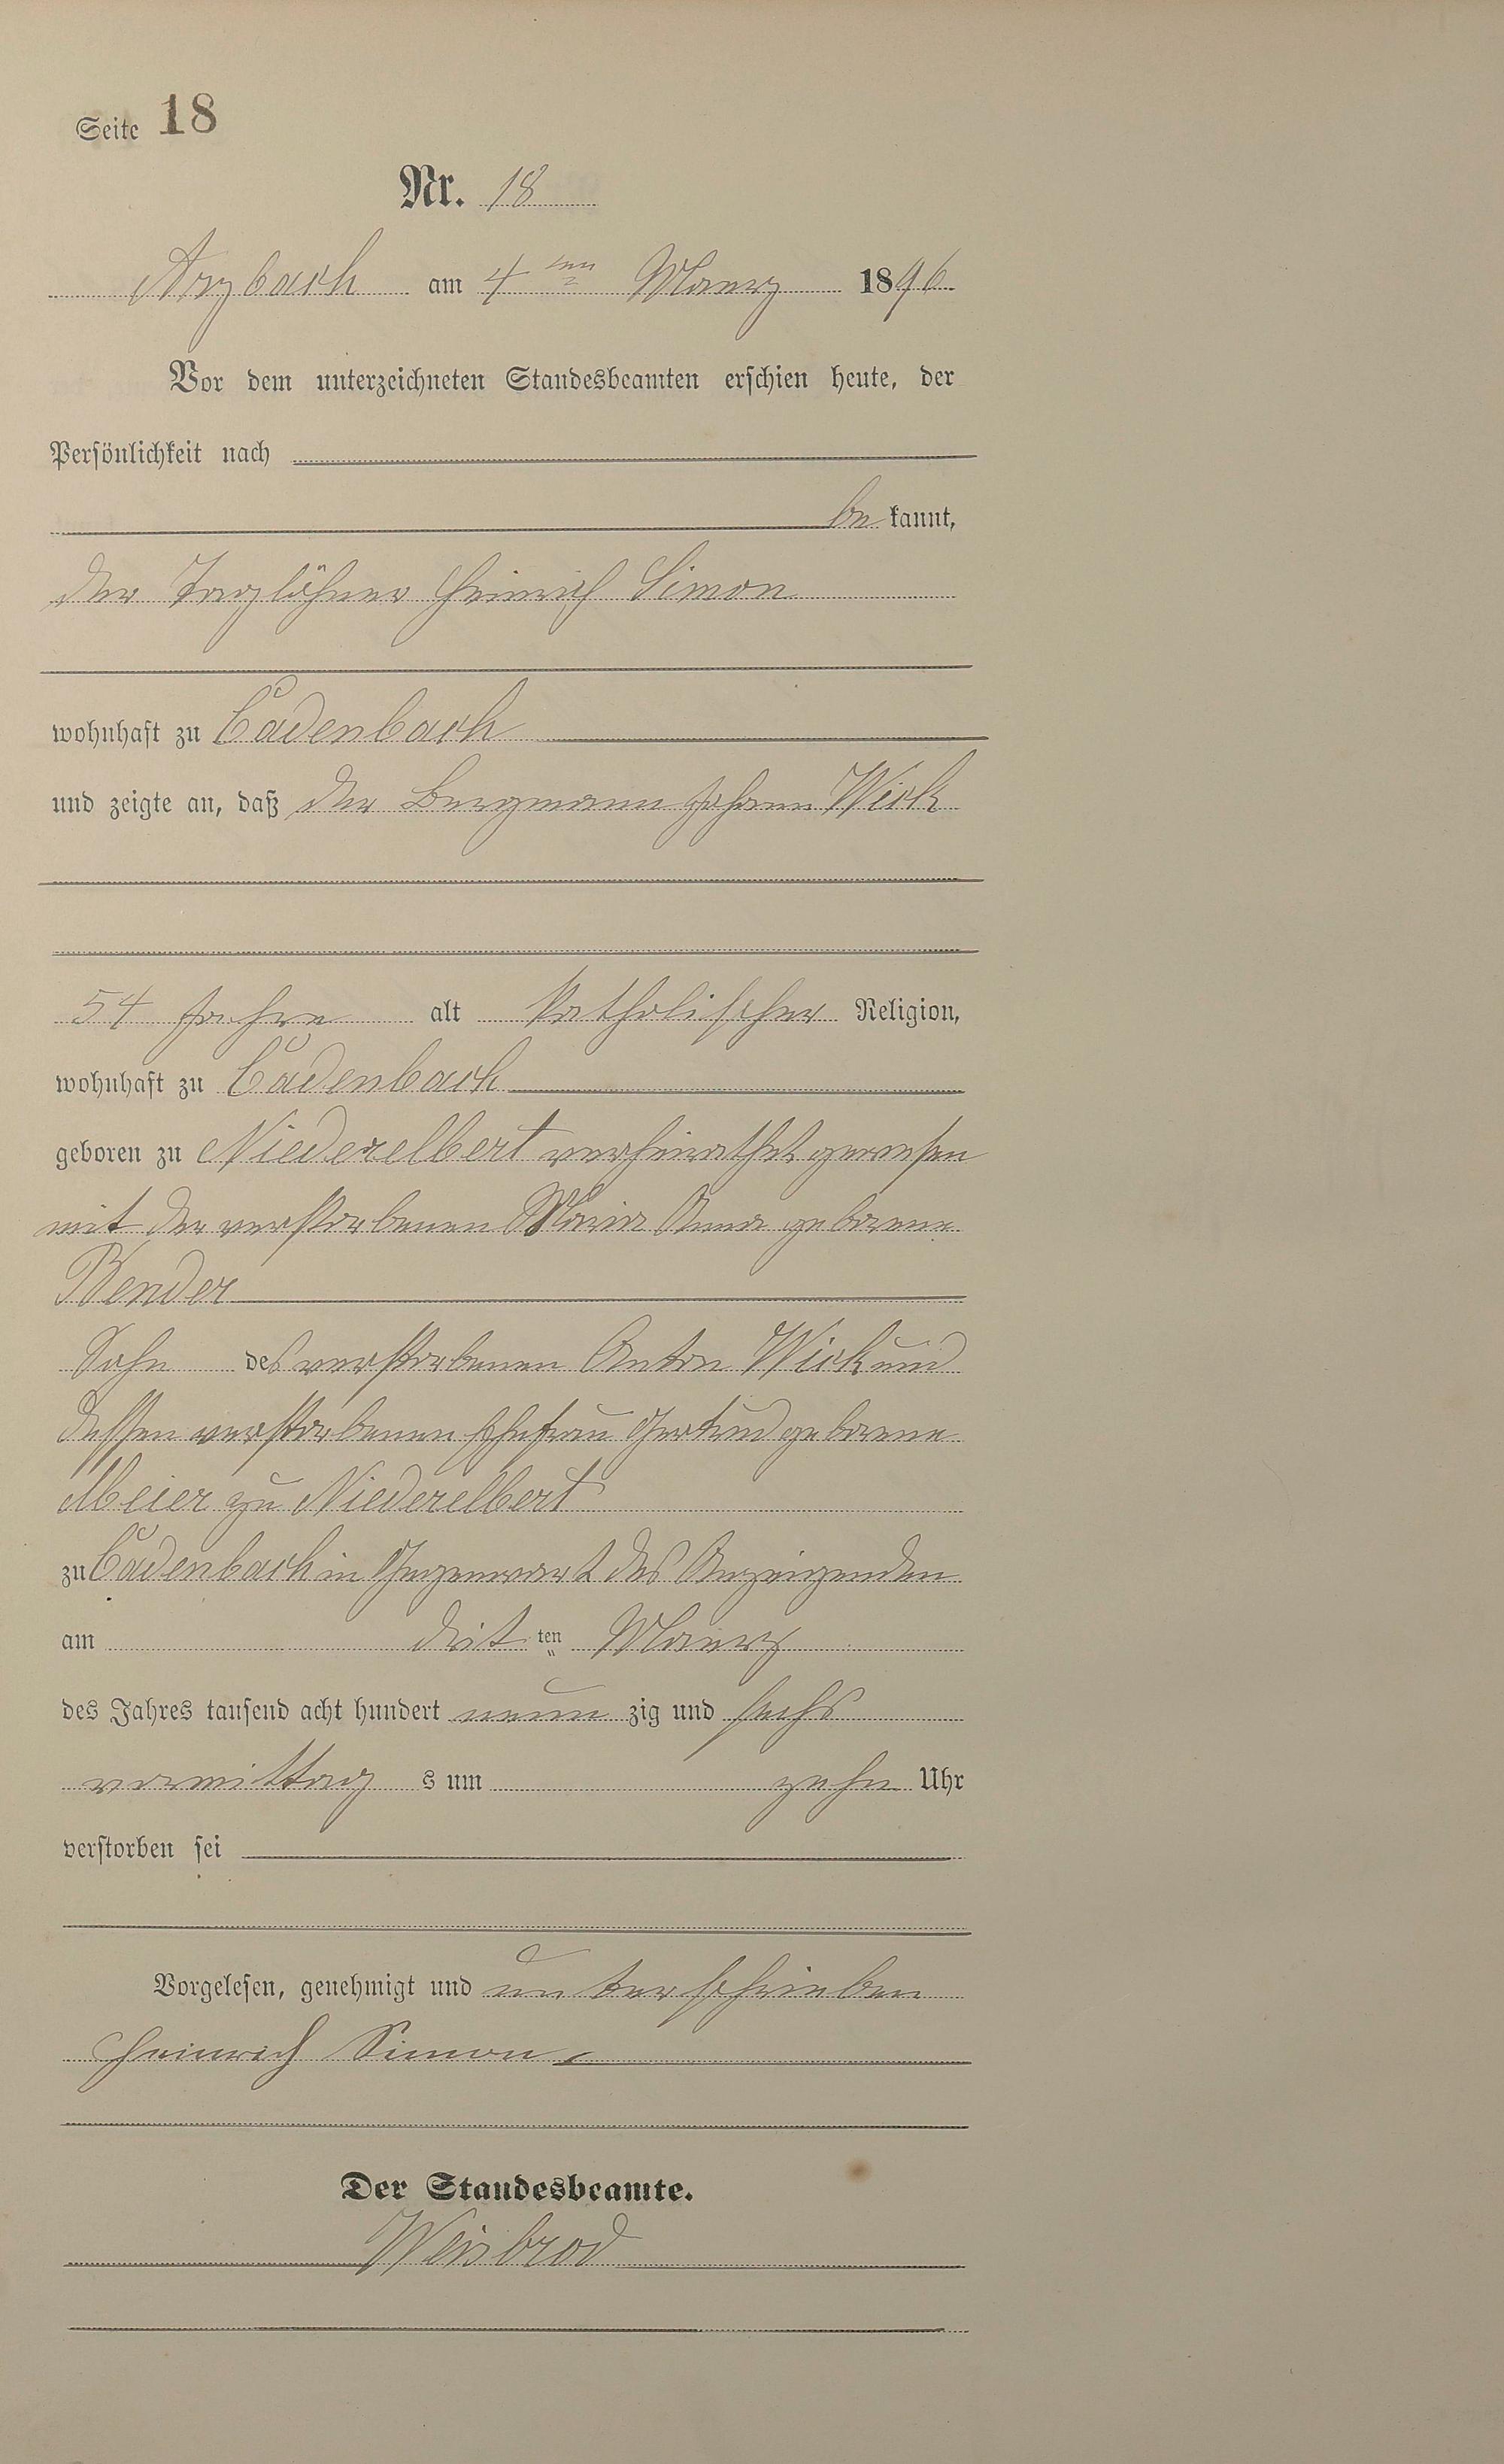 Seite 18
Nr. 18
Arzbach am 4ten Maerz 1896
Vor dem unterzeichneten Standesbeamten erschien heute, der
Persönlichkeit nach
be kannt,
der Taglöhner Heinrich Simon
wohnhaft zu Cadenbach
und zeigte an, daß der Bergmann Johann Wick
54 Jahre alt katholischer Religion,
wohnhaft zu Cadenbach
geboren zu Niederelbert verheirathet gewesen
mit der verstorbenen Maria Anna geborene
Bender
Sohn des verstorbenen Anton Wick und
dessen verstorbenen Ehefrau Gertrud geborene
Meier zu Niederelbert
zu Cadenbach in Gegenwart des Anzeigenden
am drit ten Maerz
des Jahres tausend acht hundert neun zig und sechs
vormittag s um zehn Uhr
verstorben sei
Vorgelesen, genehmigt und unterschrieben
Heinrich Simon
Der Standesbeamte.
Weisbrod